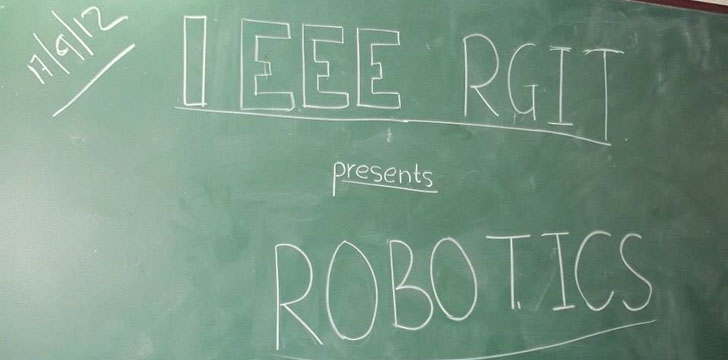 17/9/12
IEEE RGIT
presents
ROBOTICS